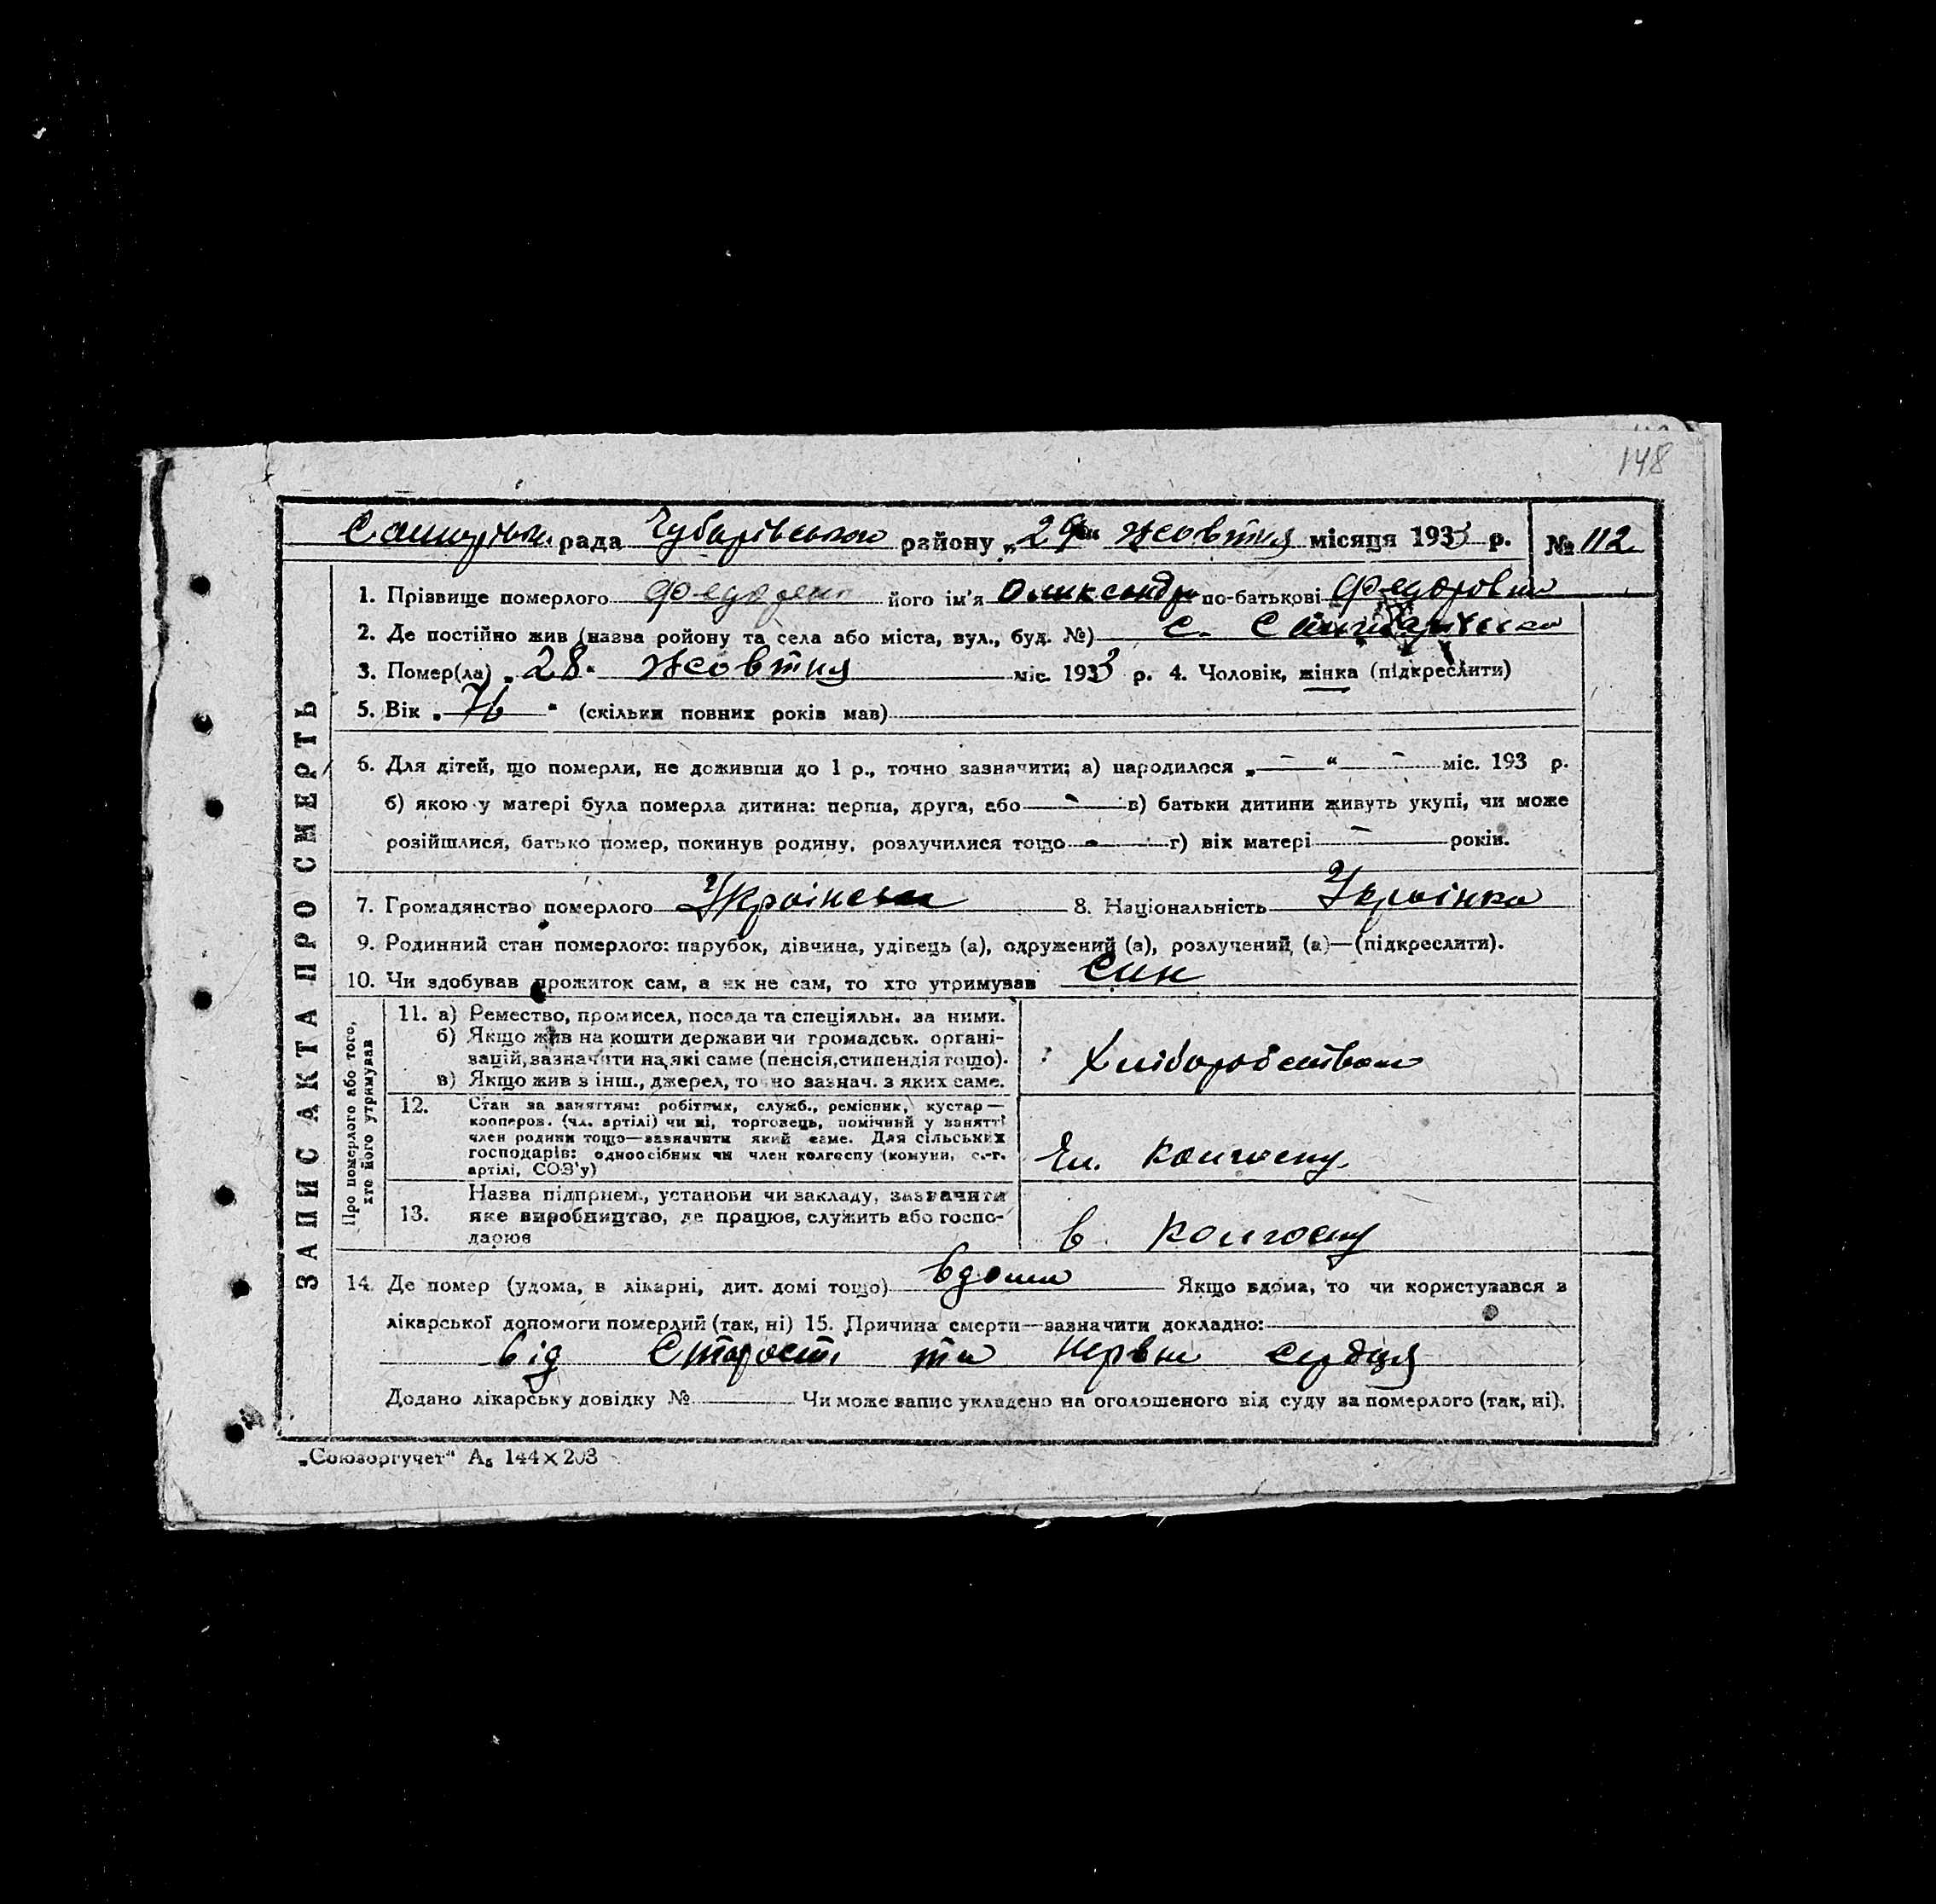 148
рада Чубарівського району „29" жовтня місяця 1933 р. № 112
1. Прізвище померлого його ім'я Олександра по-батькові Федоровна
2. Де постійно жив (назва ройону та села або міста, вул., буд. №) с.
3. Помер(ла) „28" жовтня міс. 1933 р. 4. Чоловік, жінка (підкреслити)
5. Вік „76" (скільки повних років мав)
6. Для дітей, що померли, не доживши до 1 р., точно зазначити; а) народилося „—" — міс. 193 р.
б) якою у матері була померла дитина: перша, друга, або — в) батьки дитини живуть укупі, чи може
розійшлися, батько помер, покинув родину, розлучилися тощо — г) вік матері — років.
7. Громадянство померлого 8. Національність Українка
9. Родинний стан померлого: парубок, дівчина, удівець (а), одружений (а), розлучений (а)—(підкреслити).
10. Чи здобував прожиток сам, а як не сам, то хто утримував син
ЗАПИС АКТА ПРО СМЕРТЬ
Про померлого або того,
хто його утримував
11. а) Ремество, промисел, посада та спеціяльн. за ними.
б) Якщо жив на кошти держави чи громадськ. органі-
зацій, зазначити на які саме (пенсія, стипендія тощо).
в) Якщо жив з інш., джерел, точно зазнач. з яких саме.
Хліборобством
12. Стан за заняттям: робітник, служб., ремісник, кустар—
кооперов. (чл. артілі) чи ні, торговець, помічний у занятті
член родини тощо—зазначити який саме. Для сільських
господарів: одноосібник чи член колгоспу (комуни, с.-г.
артілі, СОЗ'у)
Чл. колгоспу
13. Назва підприєм., установи чи закладу, зазначити
яке виробництво, де працює, служить або госпо-
дарює
в колгоспу
14. Де помер (удома, в лікарні, дит. домі тощо) вдома Якщо вдома, то чи користувався з
лікарської допомоги померлий (так, ні) 15. Причина смерти—зазначити докладно:
від старости та нерви сердця
Додано лікарську довідку № Чи може запис укладено на оголошеного від суду за померлого (так, ні).
„Союзоргучет" А₅ 144×203